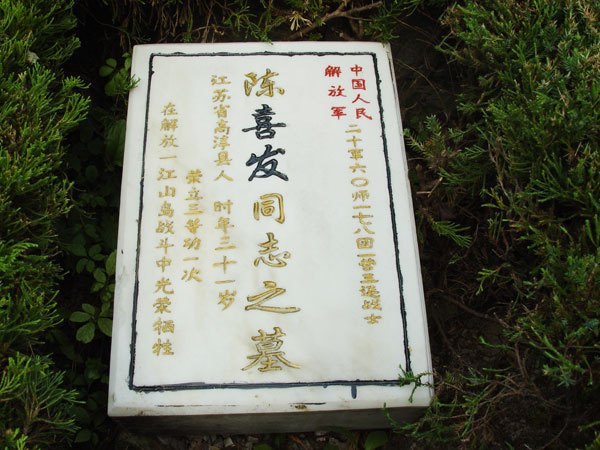 中国人民
解放军
二十军六〇师一七八团一营三连战士
陈喜发同志之墓
江苏省高淳县人 时年二十一岁
荣立三等功一次
在解放一江山岛战斗中光荣牺牲